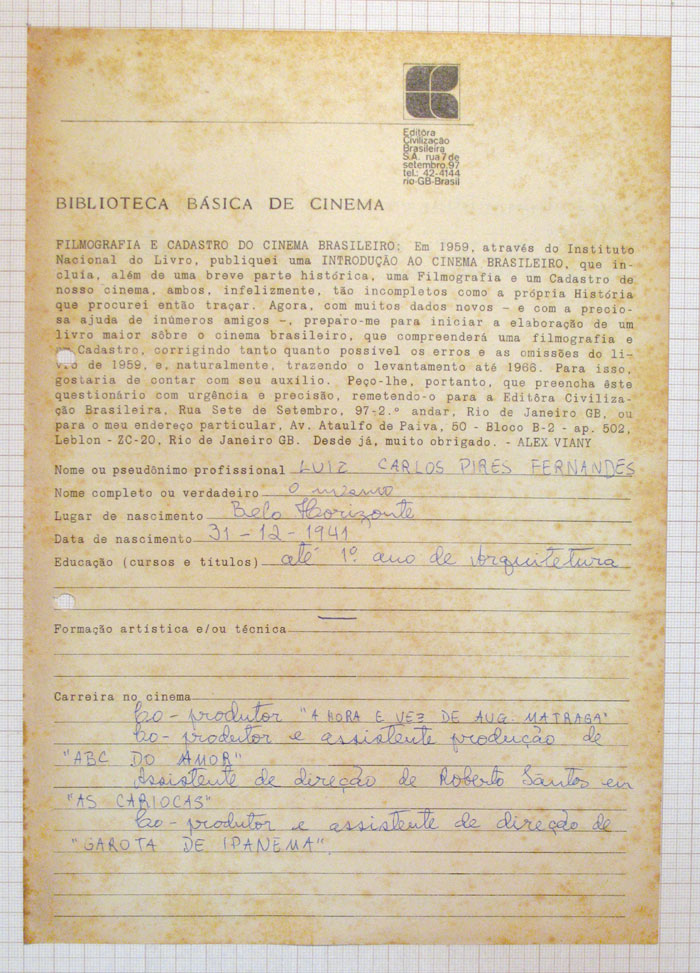 Editôra
Civilização
Brasileira
S.A. rua 7 de
setembro, 97
tel.: 42-4144
rio-GB-Brasil
BIBLIOTECA BÁSICA DE CINEMA
FILMOGRAFIA E CADASTRO DO CINEMA BRASILEIRO: Em 1959, através do Instituto
Nacional do Livro, publiquei uma INTRODUÇÃO AO CINEMA BRASILEIRO, que in-
cluía, além de uma breve parte histórica, uma Filmografia e um Cadastro de
nosso cinema, ambos, infelizmente, tão incompletos como a própria História
que procurei então traçar. Agora, com muitos dados novos – e com a precio-
sa ajuda de inúmeros amigos –, preparo-me para iniciar a elaboração de um
livro maior sôbre o cinema brasileiro, que compreenderá uma filmografia e
Cadastro, corrigindo tanto quanto possível os erros e as omissões do li-
vro de 1959, e, naturalmente, trazendo o levantamento até 1966. Para isso,
gostaria de contar com seu auxílio. Peço-lhe, portanto, que preencha êste
questionário com urgência e precisão, remetendo-o para a Editôra Civiliza-
ção Brasileira, Rua Sete de Setembro, 97-2.º andar, Rio de Janeiro GB, ou
para o meu endereço particular, Av. Ataulfo de Paiva, 50 - Bloco B-2 - ap. 502,
Leblon - ZC-20, Rio de Janeiro GB. Desde já, muito obrigado. - ALEX VIANY
Nome ou pseudônimo profissional LUIZ CARLOS PIRES FERNANDES
Nome completo ou verdadeiro o mesmo
Lugar de nascimento Belo Horizonte
Data de nascimento 31-12-1941
Educação (cursos e títulos) até 1º ano de Arquitetura
Formação artística e/ou técnica —
Carreira no cinema
Co-produtor "A HORA E VEZ DE AUG. MATRAGA"
Co-produtor e assistente produção de
"ABC DO AMOR"
Assistente de direção de Roberto Santos em
"AS CARIOCAS"
Co-produtor e assistente de direção de
"GAROTA DE IPANEMA".